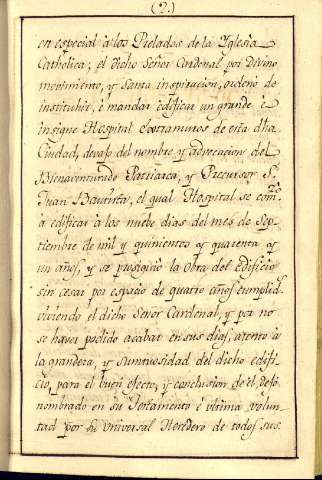 (2.)
en especial à los Prelados de la Yglesia
Catholica; el dicho Señor Cardenal por Divino
movimiento, y Santa inspiracion, ordenó de
instituhir, è mandar edificar un grande è
insigne Hospital Extramuros de esta dha.
Ciudad, devajo del nombre y advocacion del
Bienaventurado Patriarca, y Precursor Sn.
Juan Bautista, el qual Hospital se com.zo
à edificar à los nuebe dias del mes de Sep-
tiembre de mil y quinientos y quarenta y
un años, y se prosiguiò la obra del edificio
sin cesar por espacio de quatro años cumplid.s
viviendo el dicho Señor Cardenal, y por no
se haver podido acabar en sus dias, atento à
la grandeza, y sumtuosidad del dicho edifi-
cio, para el buen efecto, y conclusion de èl dejò
nombrado en su Testamento è ultima volun-
tad por su Universal Heredero de todos sus